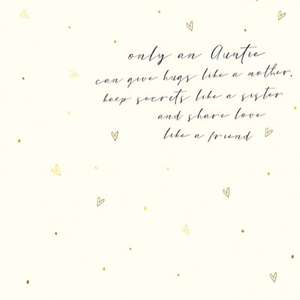 only an Auntie
can give hugs like a mother,
keep secrets like a sister
and share love
like a friend